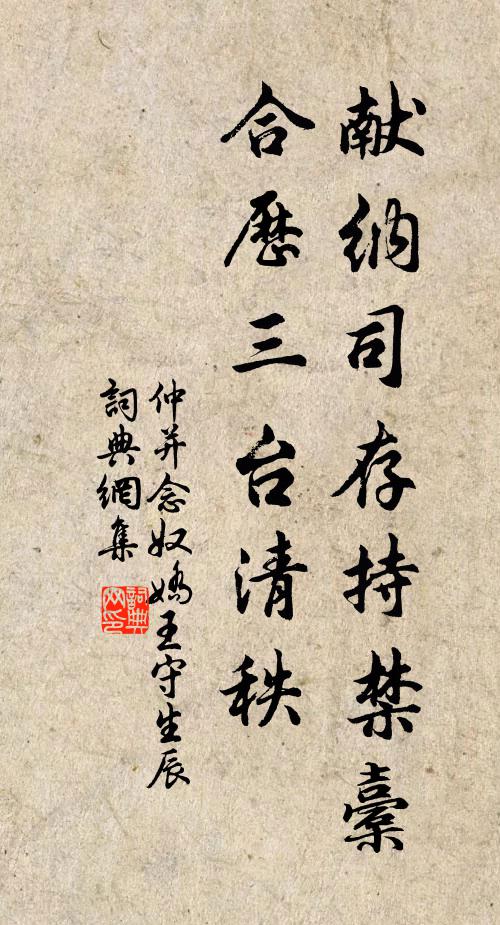 献纳司存持禁橐
合历三台清秩
仲并念奴娇王守生辰
詞典網集
詞典網印